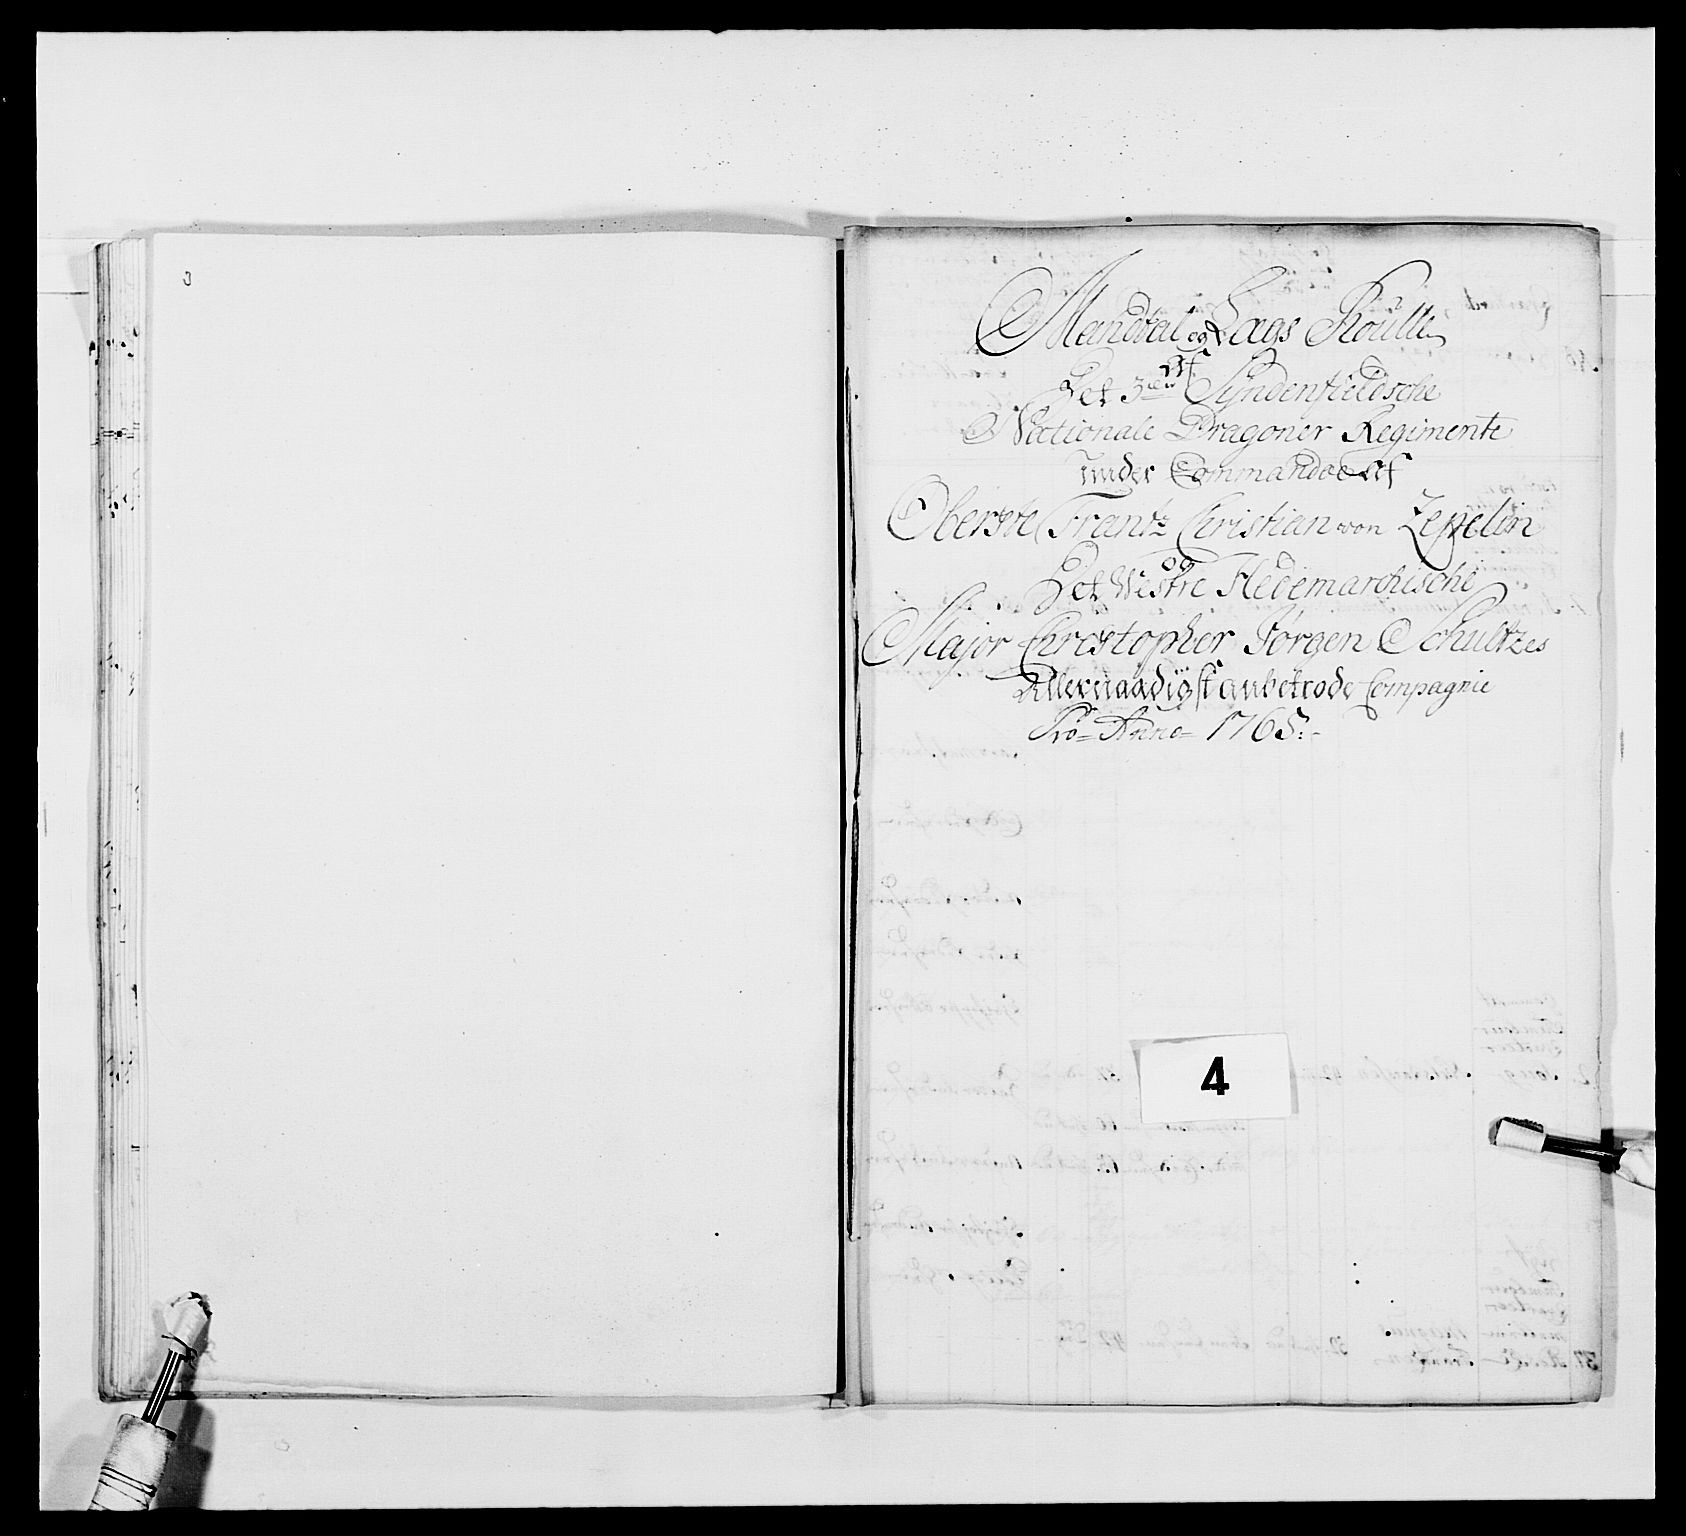 3
Mandtal og Lags Roulle
Af
Det 3die Syndenfieldsche
Nationale Dragoner Regimente
under Commando Af
Oberste Frantz Christian von Zepelin
og
Det Westre Hedemarchische
Major Christopher Jørgen Schultzes
Allernaadigst anbetrode Compagnie
Pro= Anno= 1765:-
4